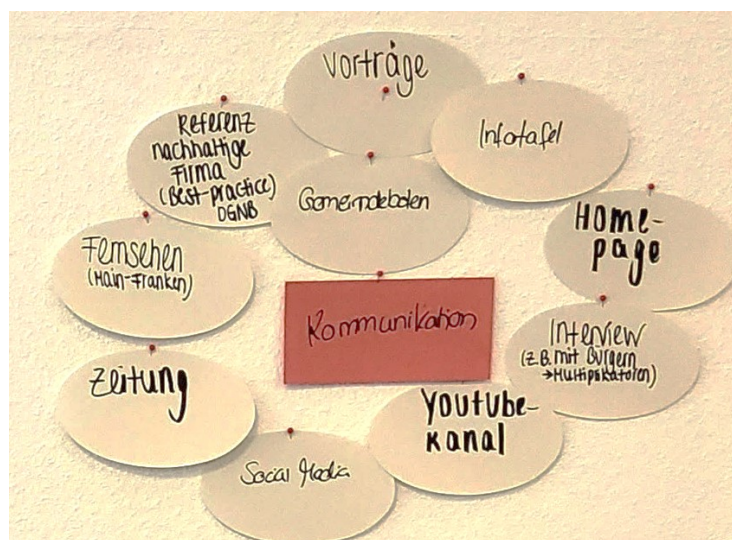 Vorträge
Infotafel
Referenz
nachhaltige
Firma
(Best-practice)
DGNB
Gemeindeboten
Home-
page
Fernsehen
(Main-Franken)
Kommunikation
Interview
(z.B. mit Bürgern
→Multiplikatoren)
Zeitung
Youtube-
kanal
Social Media